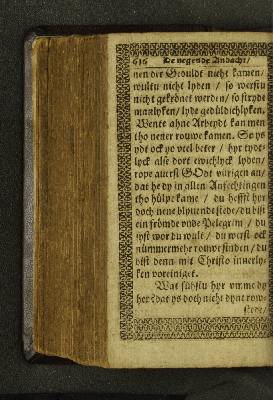 616 De negende Andacht/
nen der Gedult nicht kamen/
wultu nicht lyden / so werstu
nicht gekrönet werden/ so stryde
manlyken/ lyde gedüldichlyken.
Wente ahne Arbeydt kan men
tho nener rouwe kamen. Se ys
ydt ock yo veel beter / hyr tydt-
lyck alse dort ewichlyck lyden/
rope averst GOdt vürigen an/
dat he dy in allen Anfechtingen
tho hülpe kame / du heffst hyr
doch nene blyvende stede/ du bist
ein frömde unde Pelegrim / du
syst wor du wult / du werst ock
nümmermehr rouwe finden/ du
bist denn mit Christo innerly-
ken voreiniget.
Wat sühstu hyr umme dy
her/ dat ys doch nicht dyne row-
stede/